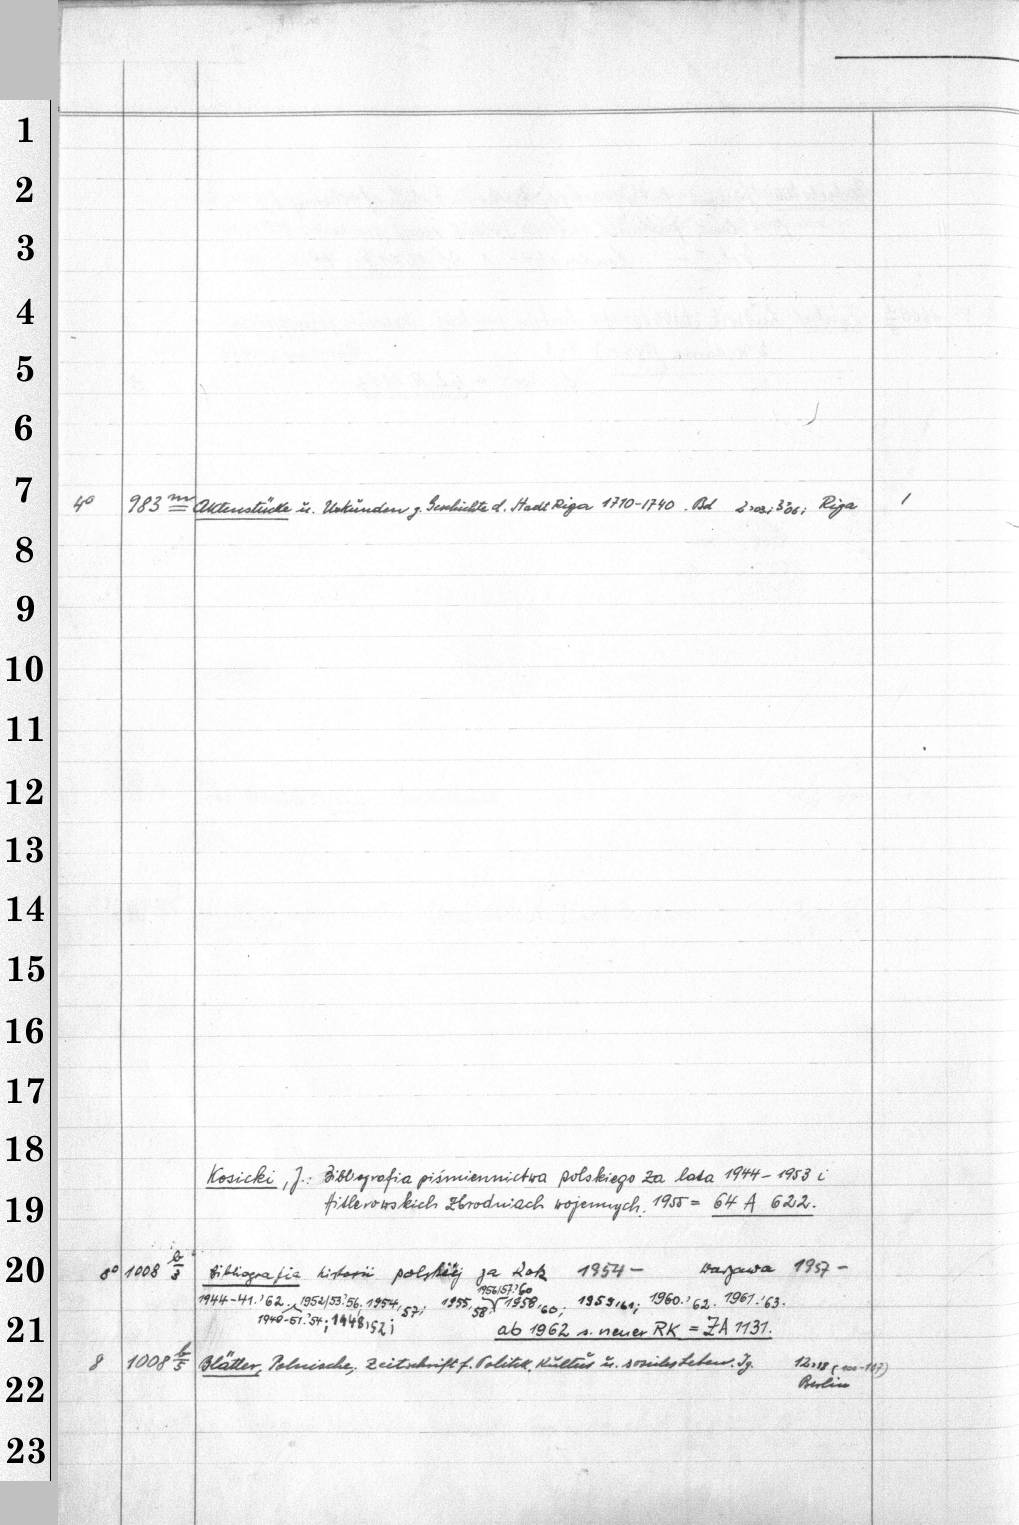 1
2
3
4
5
6
7
4° 983 m Aktenstücke u. Urkunden z. Geschichte d. Stadt Riga 1710-1740. Bd 2,'03; 3,'06; Riga 1
8
9
10
11
12
13
14
15
16
17
18
Kosicki, J.: Bibliografia piśmiennictwa polskiego za lata 1944-1953 i
19
Hitlerowskich zbrodniach wojennych. 1955 = 64 A 622.
20
8° 1008 b/3 Bibliografia historii polskiej za Rok 1954- Warszawa 1957-
1956/57.'60
1944-47.'62. 1952/53.'56. 1954,'57; 1955,'58. 1958,'60; 1959,'61; 1960.'62. 1961.'63.
1948-51.'54; 1948,'52;
21
ab 1962 s. neuer RK = ZA 1131.
8 1008 b/5 Blätter, Polnische, Zeitschrift f. Politik, Kultur u. soziales Leben. Jg. 12,'18
22
Berlin
23